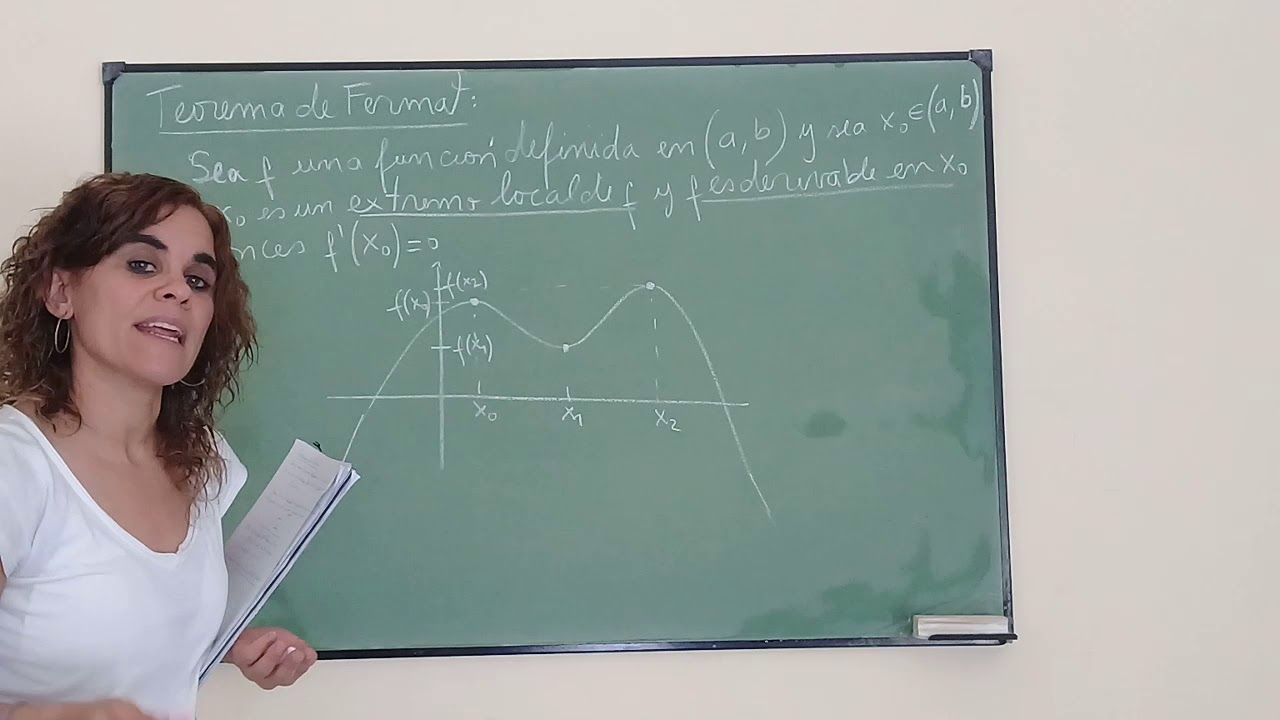 Teorema de Fermat:
Sea f una función definida en (a, b) y sea x₀ ∈ (a, b)
x₀ es un extremo local de f y f es derivable en x₀
nces f'(x₀) = 0
f(x₂)
f(x₀)
f(x₁)
x₀ x₁ x₂